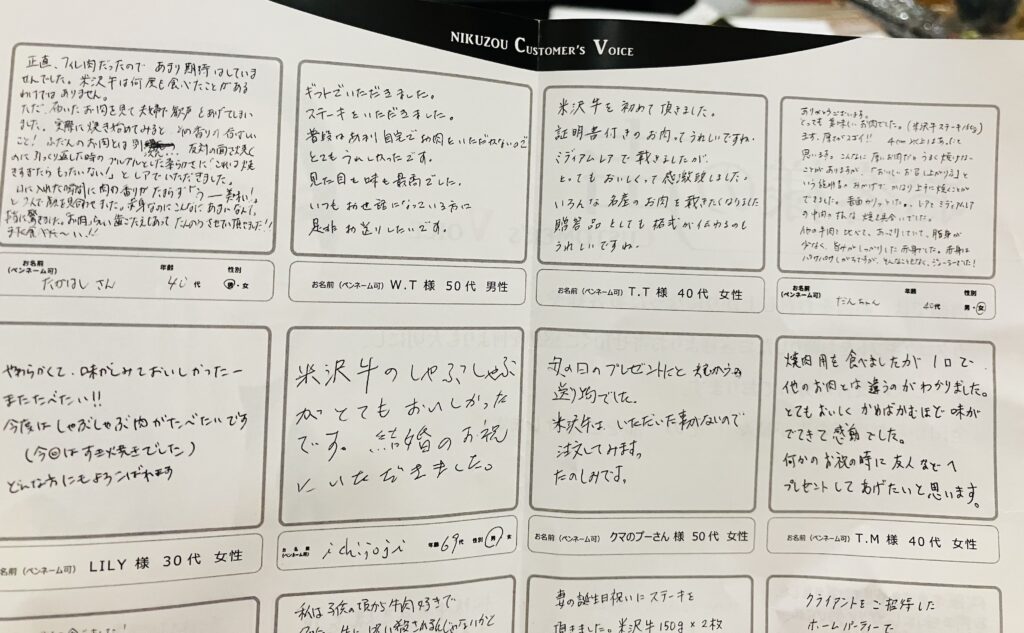 NIKUZOU CUSTOMER'S VOICE
正直、フィレ肉だったので あまり期待はしていま
せんでした。米沢牛は何度も食べたことがある
わけではありません。
ただ、届いたお肉を見て夫婦で歓声をあげてしまい
ました。実際に焼き始めてみると、その香りの香ばしい
こと! ふだんのお肉とは別 反対の面を焼く
のに引っくり返した時の プルプルとした柔らかさに「これは焼
きすぎたらもったいない」とレアでいただきました。
口に入れた瞬間に肉の香りがたまらず「う〜美味い!」
と2人で顔を見合わせました。赤身なのにこんなにあまいなんて。
お肉らしい歯ごたえもあって たんのうさせて頂きました!!
また食べたい!!
お名前(ペンネーム可) 年齢 性別
たかはし さん 40代 男・女
ギフトでいただきました。
ステーキをいただきました。
普段はあまり自宅でお肉をいただかないので
とてもうれしかったです。
見た目も味も最高でした。
いつもお世話になっている方に
是非お送りしたいです。
お名前(ペンネーム可) W.T 様 50代 男性
米沢牛を初めて頂きました。
証明書付きのお肉ってうれしいですね。
ミディアムレアで戴きましたが、
とってもおいしくって感激致しました。
いろんな名産のお肉を戴きたくなりました
贈答品としても格式が伝わるのも
うれしいですね。
お名前(ペンネーム可) T.T 様 40代 女性
ありがとうございます。
とっても美味しいお肉でした。(米沢牛ステーキ
まず、厚さがスゴイ!! 4cm以上はあったと
思います。こんなに厚いお肉だからうまく焼けない
ことがありますが、「おいしいお召し上がり方」と
いう説明書のおかげで、かなり上手に焼くことが
できました。表面がカリッと。レアとミディアム
の中間の 焼き具合でした。
他の牛肉に比べて、あっさりしていて、脂身が
少なく、旨みがしっかりした赤身でした。赤身は
パサパサしがちですが、そんなこともなく、ジューシーでした!
お名前(ペンネーム可) 年齢 性別
だんちゃん 40代 男・女
やわらかくて、味がしみておいしかったー
またたべたい!!
今度はしゃぶしゃぶ肉がたべたいです
(今回はすき焼きでした)
どんな方にもよろこばれます
お名前(ペンネーム可) LILY 様 30代 女性
米沢牛のしゃぶしゃぶ
がとてもおいしかった
です。結婚のお祝
いにいただきました。
お名前(ペンネーム可) ichijoji 年齢 69代 性別 男・女
父の日のプレゼントにと 娘からの
送り物でした。
米沢牛は、いただいた事がないので
注文してみます。
たのしみです。
お名前(ペンネーム可) クマのプーさん 様 50代 女性
焼肉用を食べましたが 1口で、
他のお肉とは違うのがわかりました。
とてもおいしく かめばかむほど味が
でてきて感動でした。
何かのお祝の時に友人などへ
プレゼントしてあげたいと思います。
お名前(ペンネーム可) T.M 様 40代 女性
私は子供の頃から牛肉好きで
妻の誕生日祝いにステーキを
頂きました。米沢牛150g×2枚
クライアントをご招待した
ホームパーティーで